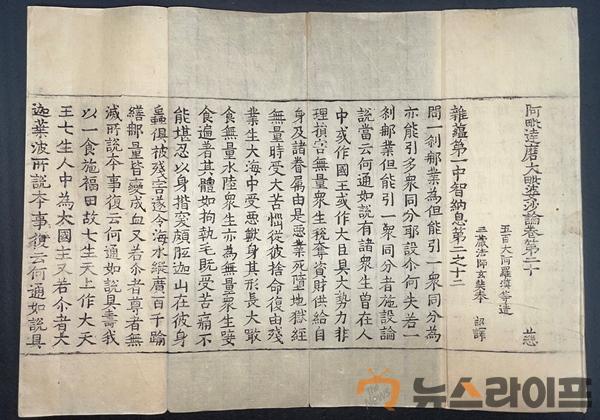 阿毗達磨大毗婆沙論卷第二十
五百大阿羅漢等造
三藏法師玄奘奉 詔譯
雜蘊第一中智納息第二之十二
問一刹那業為但能引一衆同分為
亦能引多衆同分耶設尒何失若一
刹那業但能引一衆同分者施設論
說當云何通如說有諸衆生曽在人
中或作國王或作大臣具大勢力非
理損害無量衆生稅奪資財供給自
身及諸眷屬由是惡業死墮地獄經
無量時受大苦惱從彼捨命復由殘
業生大海中受惡獸身其形長大噉
食無量水陸衆生亦為無量衆生唼
食遍著其體如拘執毛旣受苦痛不
能堪忍以身揩突頗胝迦山在彼身
蟲俱被殘害遂令海水縱廣百千踰
繕那量皆變成血又若尒者尊者無
滅所說本事復云何通如說具壽我
以一食施福田故七生天上作大天
王七生人中為大國王又若尒者大
迦葉波所說本事復云何通如說具
The News
뉴스라이프